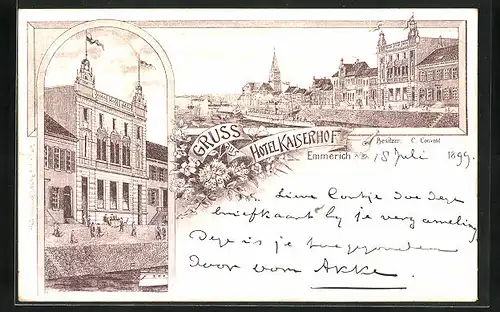 GRUSS
HOTEL KAISERHOF
Besitzer: C. Convent
Emmerich a/Rh. 18 Juli 1899.
Lieve Contje doe deze
briefkaart by je verzameling
Deze is je toegezonden
door oom Akke.